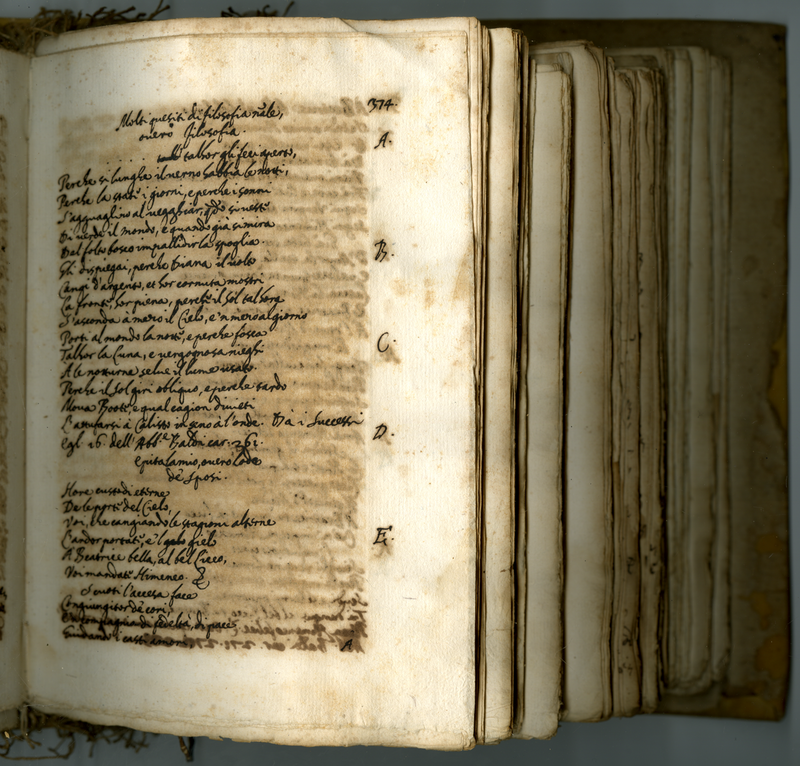 374.
Molti quesiti di filosofia nãle,
overo filosofia.
A.
. . . . . talhor gli feci aperto,
Perche si lunghe il verno habbia le notti,
Perche la state i giorni, e perche i sonni
S'agguaglino al vegghiar, qñdo si vesti
Di verde il mondo, e quando già si mira
Dal folto bosco impallidir la spoglia.
B.
Gli dispiegai, perche Diana il volto
Cangi d'argento, et hor cornuta mostri
La fronte, hor piena, perche il Sol talhora
S'asconda a mezo il Cielo, e'n mezo al giorno
Porti al mondo la notte, e perche fosca
C.
Talhor la Luna, e vergognosa nieghi
A le notturne selve il lume usato.
Perche il Sol giri obliquo, e perche tardo
Mova Boote, e qual cagion divieti
L'attuffarsi a Calisto in seno à l'onde. Da i Successi
D.
Egl. 16. dell' Abb.e Baldi car. 261.
Epitalamio, overo lode
de' Sposi.
Hore custodi eterne
De le porte del Cielo,
Voi, che cangiando le stagioni alterne
E.
L'ardor portate, e'l gielo
A Beatrice bella, al bel Cieco,
Voi mandate Himeneo.
Scuoti l'accesa face
Congiungitor de' cori,
In compagnia di fedeltà, di pace
Guidando i casti amori.
A